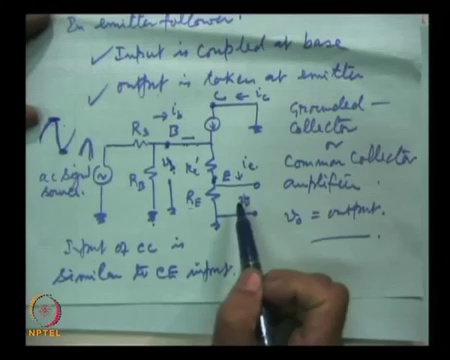 In emitter follower!
✓ Input is coupled at base
✓ output is taken at emitter
C ← ic
→ ib
B
Rs
RB
re'
E
ie
RE
ac signal
source
Grounded-
Collector
or
Common Collector
amplifier
vo = output.
Input of CC is
similar to CE input.
NPTEL